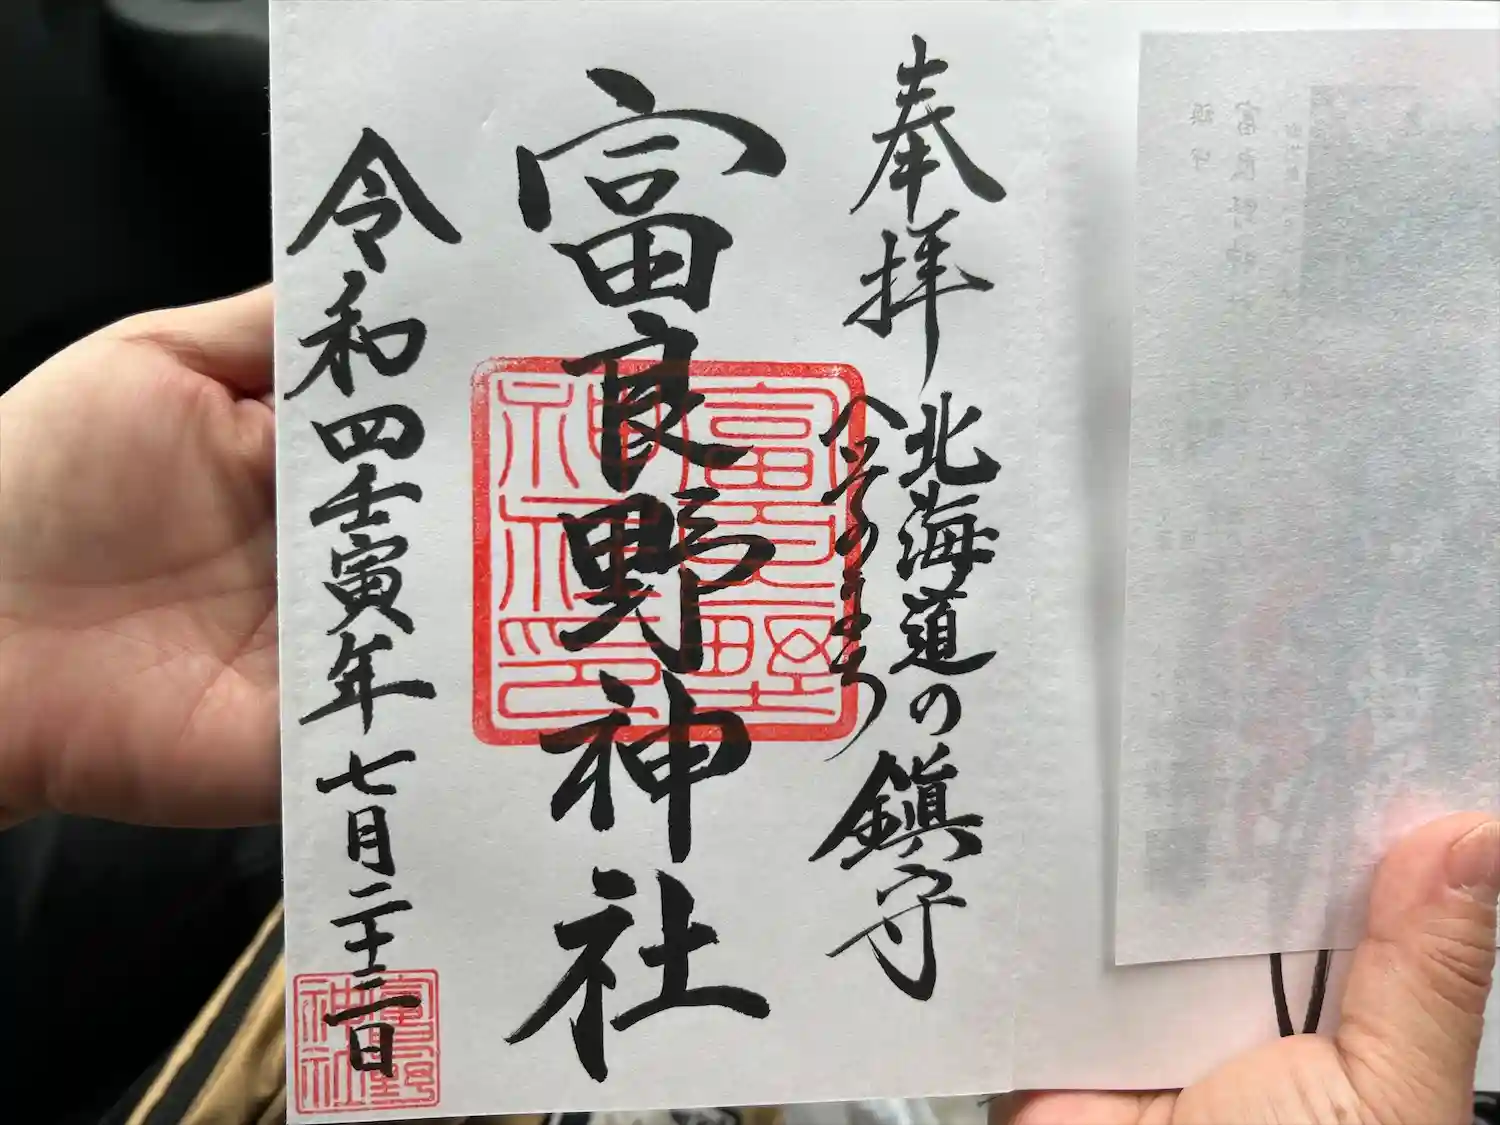 奉拝
北海道の鎮守
へそのまち
富良野神社
富良野神社印
令和四壬寅年七月二十三日
富良野神社